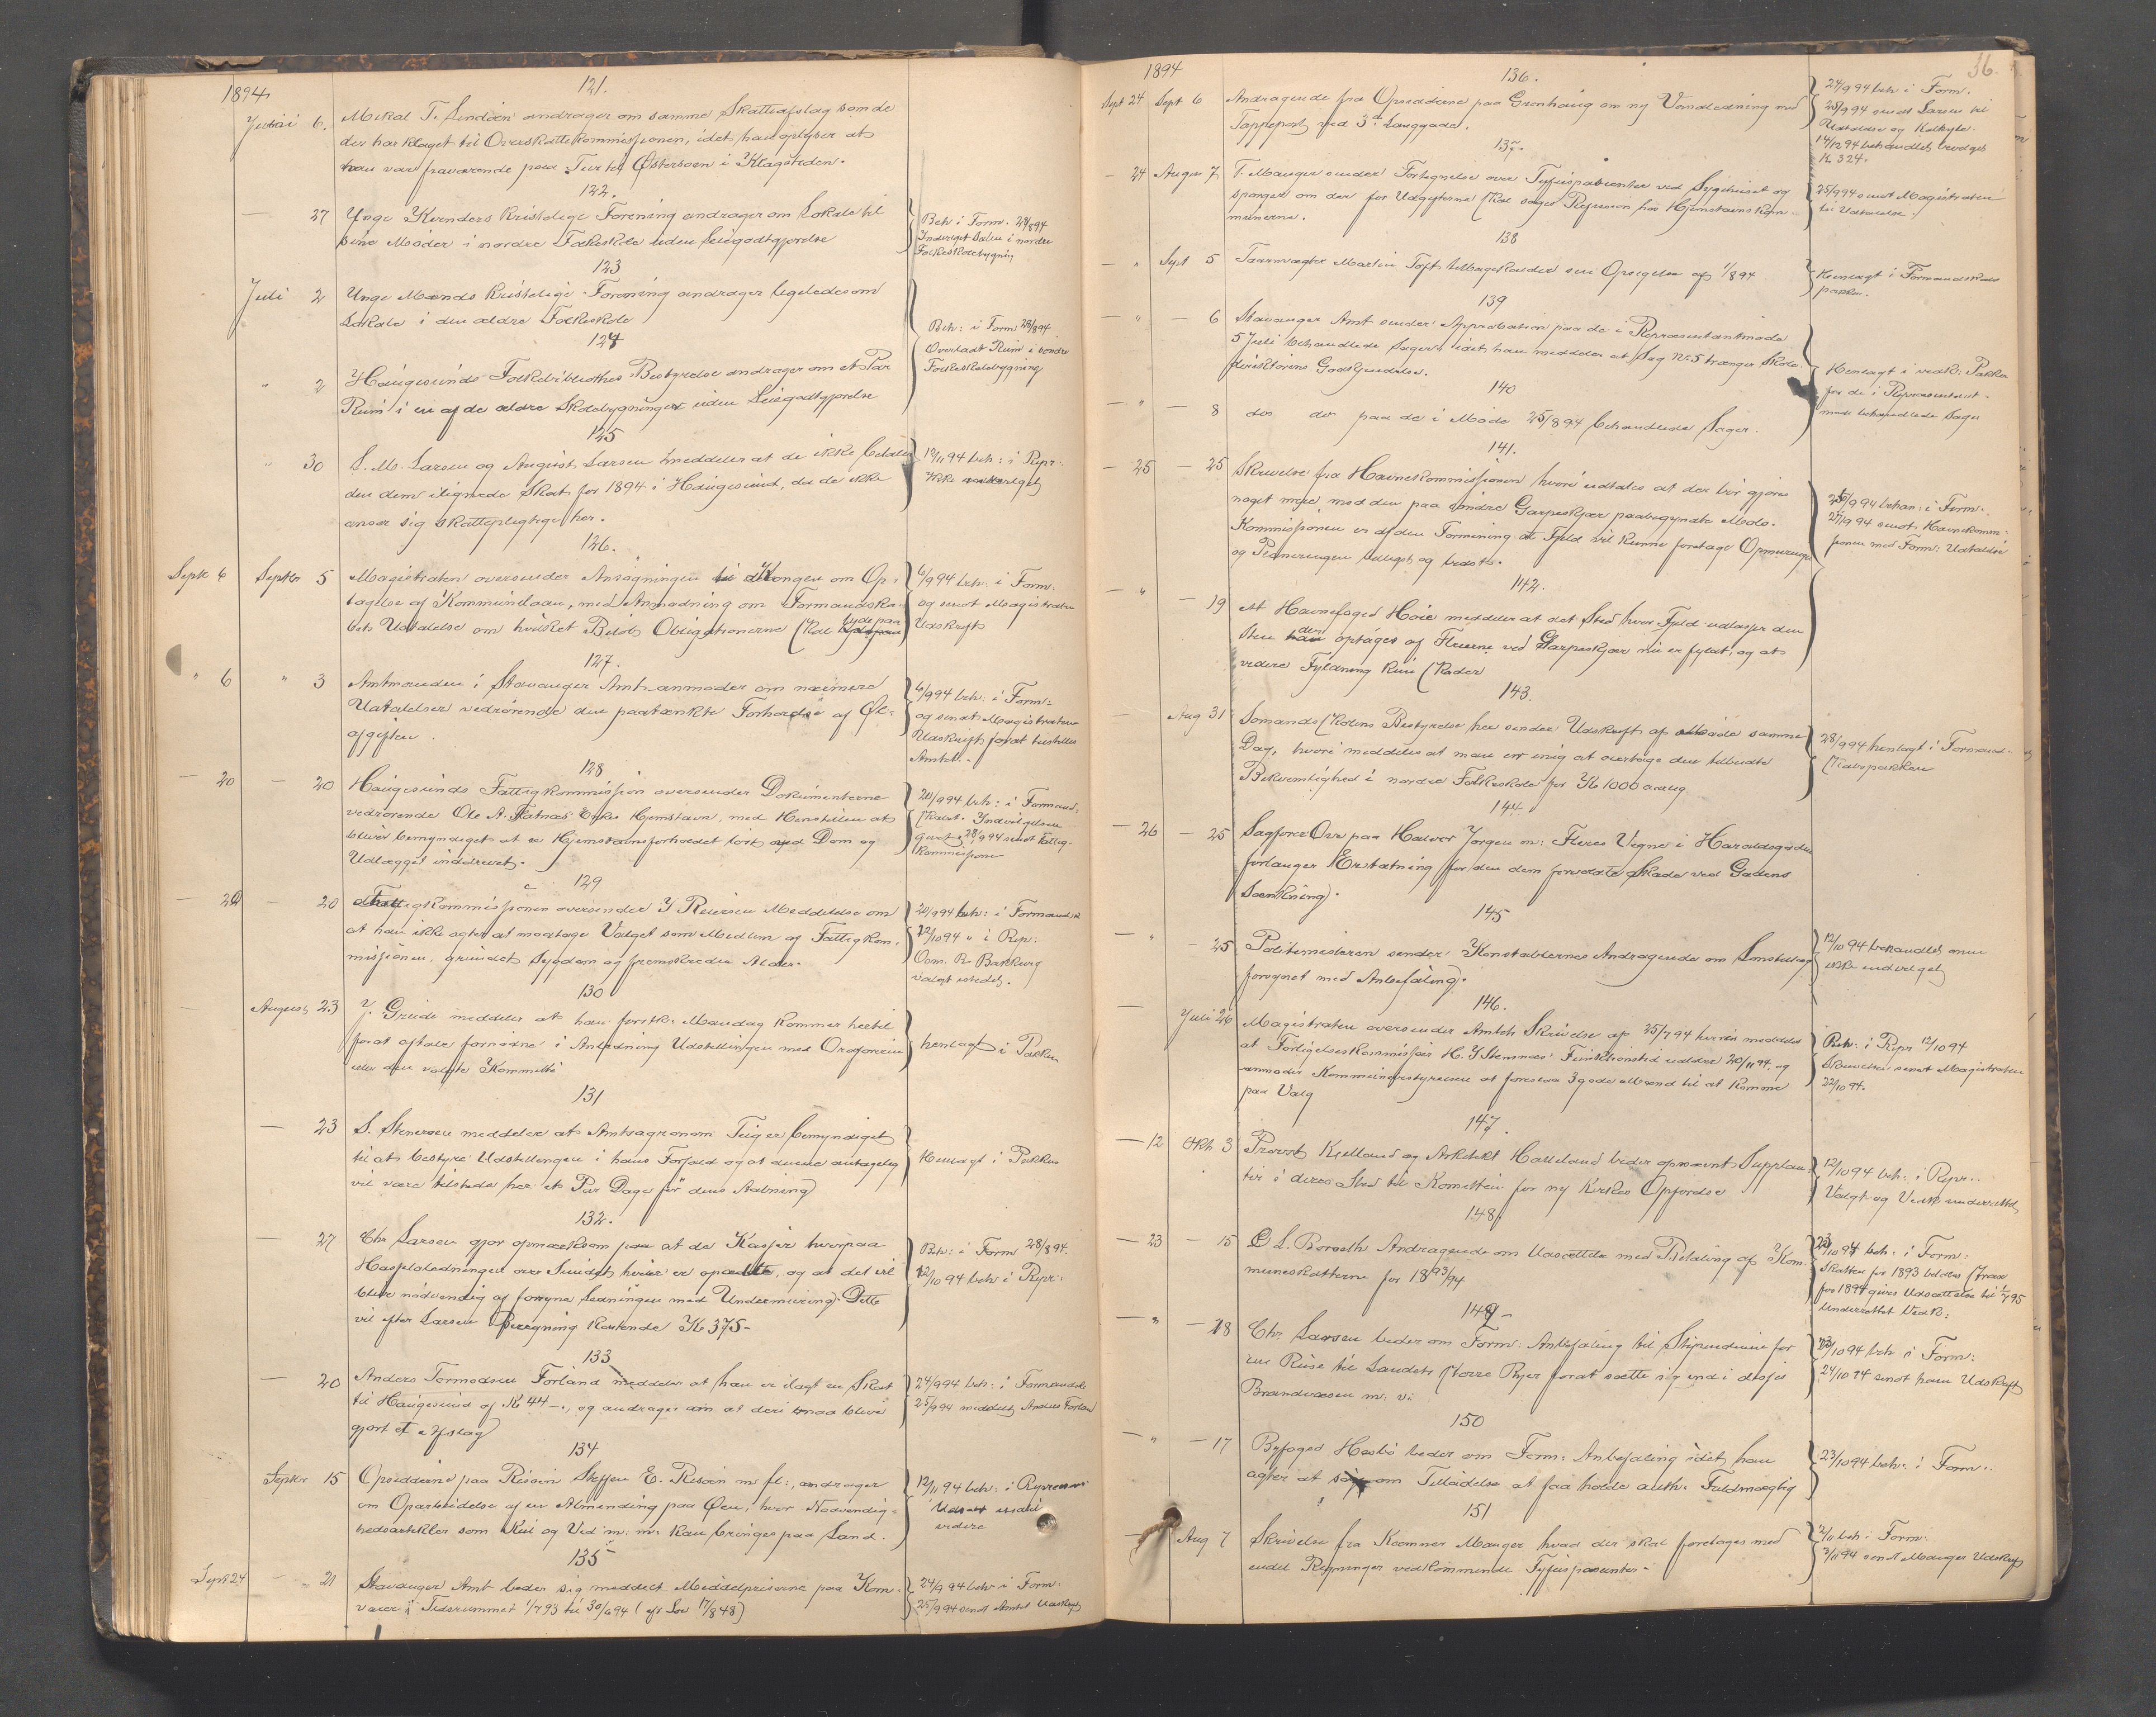 1894
121.
Juni 6. Mikal T. Lindöen andrager om samme Skatteafslag som de
der har klaget til Overskattekommissjonen, idet han oplyser at
han var fraværende paa Tur til Østersøen i Klagetiden.
122.
— 27 Unge Kvinders Kristelige Forening andrager om Lokale til
sine Møder i nordre Folkeskole uden Leiegodtgjørelse
Beh i Form. 28/894
Indvilget Salen i nordre
Folkeskolebygning
123
Juli 2 Unge Mænds Kristelige Forening andrager ligeledes om
Lokale i den ældre Folkeskole
124
" 2 Haugesunds Folkebibliotheks Bestyrelse andrager om et Par
Rum i en af de ældre Skolebygninger uden Leiegodtgjørelse
Beh: i Form 28/894
Overladt Rum i søndre
Folkeskolebygning
125
" 30 S. M. Larsen og August Larsen meddeler at de ikke betaler
den dem ilignede Skat for 1894 i Haugesund, da de ikke
anser sig skattepligtige her.
12/11 94 beh: i Repr:
Ikke
126.
Sept 6 Septbr 5 Magistraten oversender Ansøgningen til Kongen om Op-
tagelse af Kommunelaan, med Anmodning om Formandska-
bets Udtalelse om hvilket Beløb Obligationerne skal lyde paa
6/9 94 beh: i Form:
og sendt Magistraten
Udskrift
127.
" 6 " 3 Amtmanden i Stavanger Amt anmoder om nærmere
Udtalelser vedrørende den paatænkte Forhøielse af Øl-
afgiften.
6/9 94 beh: i Form:
og sendt Magistraten
Udskrift forat tilstilles
Amtet.
128
— 20 — 20 Haugesunds Fattigkommission oversender Dokumenterne
vedrørende Ole A. Fatnæs Enkes Hjemstavn, med Henstillen at
blive bemyndiget at se Hjemstavnsforholdet løst ved Dom og
Udlægget inddrevet.
20/9 94 beh: i Formand-
skabet. Indvilgelsen
28/9 94 sendt Fattig-
kommissionen
129
— 20 — 20 Fattigkommissjonen oversender Y Reiersen Meddelelse om
at han ikke agter at modtage Valget som Medlem af Fattigkom-
missjonen, grundet Sygdom og fremskreden Alder.
20/9 94 beh: i Formandsk
12/10 94 " i Rep:
Oom. R. Bakkevig
valgt istedet.
130
August 23 J. Greide meddeler at han førstk: Mandag kommer hertil
forat aftale fornødne i Anledning Udstillingen med Ordføreren
eller den valgte Kommitté
henlagt i Pakken
131
— 23 S. Stenersen meddeler at Amtsagronom Teig er bemyndiget
til at bestyre Udstillingen i hans Forfald og at denne antagelig
vil være tilstede her et Par Dage før dens Aabning
Henlagt i Pakken
132.
— 27 Chr Larsen gjør opmærksom paa at de Kasser hvorpaa
Haspeledningen over Sundet hviler er opædte, og at det vil
blive nødvendig af forsyne Ledningen med Undermuring. Dette
vil efter Larsens Beregning kostende Kr 375-
Beh: i Form 28/894.
12/10 94 beh i Repr:
133
— 20 Anders Tormodsen Førland meddeler at han er ilagt en Skat
til Haugesund af Kr 44-, og andrager om at deri maa blive
gjort et Afslag
24/994 beh: i Formandsk
25/994 meddelt Anders Førland
134
Septbr 15 Opsidderne paa Risøen Steffen E. Risøen m fl:, andrager
om Oparbeidelse af en Almending paa Øen, hvor Nødvendig-
hedsartikler som Kul og Ved m: m: kan bringes paa Land.
12/11 94 beh: i Repræsent
Udsat indtil
videre
135
Sept 24 — 21 Stavanger Amt beder sig meddelt Middelpriserne paa Korn-
varer i Tidsrummet 1/7 93 til 30/6 94 (cfr Lov 17/8 48)
24/9 94 beh i Form:
25/9 94 sendt Amtet Udskrift
1894
36.
136.
Sept 24 Sept 6 Andragende fra Opsidderne paa Grønhaug om ny Vandledning med
Tappepost ved 3de Langgade.
24/9 94 beh i Form.
28/9 94 sendt Larsen til
Udtalelse og Kalkyle.
14/12 94 behandlet bevilget
Kr 324.
137.
— 24 August 7 T. Mauger sender Fortegnelse over Tyfuspatienter ved Sygehuset og
spørger om der for Udgifterne skal søges Refusion hos Hjemstavnskom-
munerne.
25/994 sendt Magistraten
til Udtalelse.
138
— " Sept 5 Taarnvægter Martin Toft tilbagekalder sin Opsigelse af 1/894
Henlagt i Formandskabs
pakken.
139
— " — 6 Stavanger Amt sender Approbation paa de i Repræsentantmøde
5 Juli behandlede Sager, idet han meddeler at Sag No 5 trænger Skole-
direktørens Godkjendelse.
140
— " — 8 do do paa de i Møde 25/894 behandlede Sager.
Henlagt i vedk: Pakke
for de i Repræsentant-
møde behandlede Sager
141.
— 25 — 25 Skrivelse fra Havnekommissjonen hvori udtales at der bør gjøres
noget mere med den paa søndre Garpeskjær paabegyndte Molo.
Kommissjonen er af den Formening at Fyld vil kunne foretage Opmuringen
og Planeringen billigst og bedst.
25/9 94 behan: i Form.
27/9 94 sendt Havnekomm:
sjonen med Form: Udtalelse
142.
— " — 19 Havnefoged Høie meddeler at det Sted hvor Fyld udlasser den
Sten der optages af Fluerne ved Garpeskjær nu er fyldt, og at
videre Fyldning kun skader
143.
— Aug 31 Sømandsskolens Bestyrelse her sender Udskrift af Møde samme
Dag, hvori meddeles at man er enig at overtage den tilbudte
Bekvemlighed i nordre Folkeskole for Kr 1000 aarlig
28/994 henlagt i Formand-
skabspakken
144
— 26 — 25 Sagfører Ove paa Halvor Jørgensen m: Fleres Vegne i Haraldsgaden
forlanger Erstatning for den dem forvoldte Skade ved Gadens
Sænkning.
145
— " — 25 Politimesteren sender Konstablernes Andragende om Lønstillæg
forsynet med Anbefaling.
12/10 94 behandlet men
ikke indvilget
146.
— Juli 26 Magistraten oversender Amtets Skrivelse af 25/7 94 hvori meddeles
at Forligelseskommissær H. Y Stemnæs' Funktionstid udløber 20/11 94, og
anmoder Kommunebestyrelsen at foreslaa 3 gode Mænd til at komme
paa Valg
Beh: i Repr 12/10 94
Skrivelsen sendt Magistraten
22/10 94.
147.
— 12 Oktb 3 Provst Kielland og Arkitekt Halleland beder opnævnt Supplan-
ter i deres Sted til Komitéen for ny Kirkes Opførelse
12/10 94 beh: i Repr..
Valgt og Vedk underrettet
148.
— 23 — 15 L. Borseth Andragende om Udsættelse med Betaling af Kom-
muneskatterne for 1893/94
23/10 94 beh: i Form:
Skatten for 1893 betales strax
for 1894 gives Udsættelse til 1/7 95
Underrettet Vedk:
149-
— " — 18 Chr Larsen beder om Form: Anbefaling til Stipendium for
en Reise til Landets større Byer forat sætte sig ind i disses
Brandvæsen m: v:
23/10 94 beh i Form:
24/10 94 sendt ham Udskrift
150
— " — 17 Byfoged Hasbø beder om Form: Anbefaling idet han
agter at søge om Tilladelse at faa holde auth. Fuldmægtig
23/10 94 beh: i Form..
151
— Aug 7 Skrivelse fra Kæmner Mauger hvad der skal foretages med
endel Regninger vedkommende Tyfuspasienter-
2/11 beh i Form:
3/11 94 sendt Mauger Udskrift